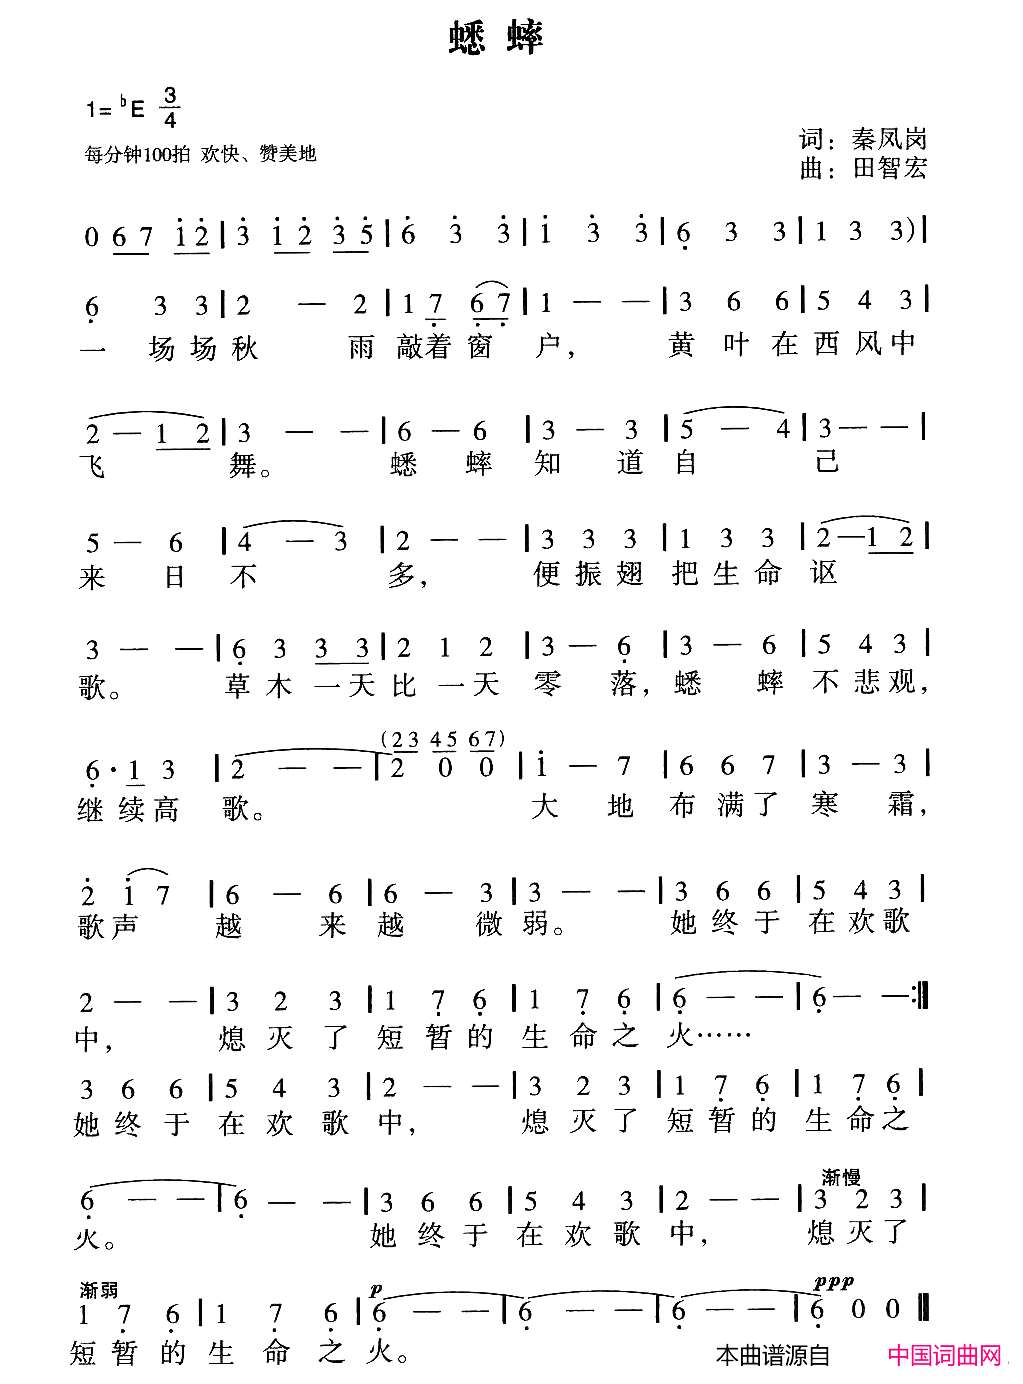 蟋蟀
1=♭E 3/4
每分钟100拍 欢快、赞美地
词：秦凤岗
曲：田智宏
0 6 7 1̇ 2̇ | 3̇ 1̇ 2̇ 3̇ 5̇ | 6̇ 3̇ 3̇ | 1̇ 3̇ 3̇ | 6̣ 3 3 | 1 3 3 ) |
6̣ 3 3 | 2 — 2 | 1 7̣ 6̣ 7̣ | 1 — — | 3 6 6 | 5 4 3 |
一 场 场 秋 雨 敲 着 窗 户， 黄 叶 在 西 风 中
2 — 1 2 | 3 — — | 6 — 6 | 3 — 3 | 5 — 4 | 3 — — |
飞 舞。 蟋 蟀 知 道 自 己
5 — 6 | 4 — 3 | 2 — — | 3 3 3 | 1 3 3 | 2 — 1 2 |
来 日 不 多， 便 振 翅 把 生 命 讴
3 — — | 6̣ 3 3 3 | 2 1 2 | 3 — 6̣ | 3 — 6 | 5 4 3 |
歌。 草 木 一 天 比 一 天 零 落， 蟋 蟀 不 悲 观，
(2 3 4 5 6 7)
6̣· 1 3 | 2 — — | 2 0 0 | 1̇ — 7 | 6 6 7 | 3 — 3 |
继 续 高 歌。 大 地 布 满 了 寒 霜，
2̇ 1̇ 7 | 6 — 6 | 6 — 3 | 3 — — | 3 6 6 | 5 4 3 |
歌 声 越 来 越 微 弱。 她 终 于 在 欢 歌
2 — — | 3 2 3 | 1 7̣ 6̣ | 1 7̣ 6̣ | 6̣ — — | 6̣ — — :‖
中， 熄 灭 了 短 暂 的 生 命 之 火……
3 6 6 | 5 4 3 | 2 — — | 3 2 3 | 1 7̣ 6̣ | 1 7̣ 6̣ |
她 终 于 在 欢 歌 中， 熄 灭 了 短 暂 的 生 命 之
渐慢
6̣ — — | 6̣ — — | 3 6 6 | 5 4 3 | 2 — — | 3 2 3 |
火。 她 终 于 在 欢 歌 中， 熄 灭 了
渐弱 p ppp
1 7̣ 6̣ | 1 7̣ 6̣ | 6̣ — — | 6̣ — — | 6̣ — — | 6̣ 0 0 ‖
短 暂 的 生 命 之 火。
本曲谱源自 中国词曲网